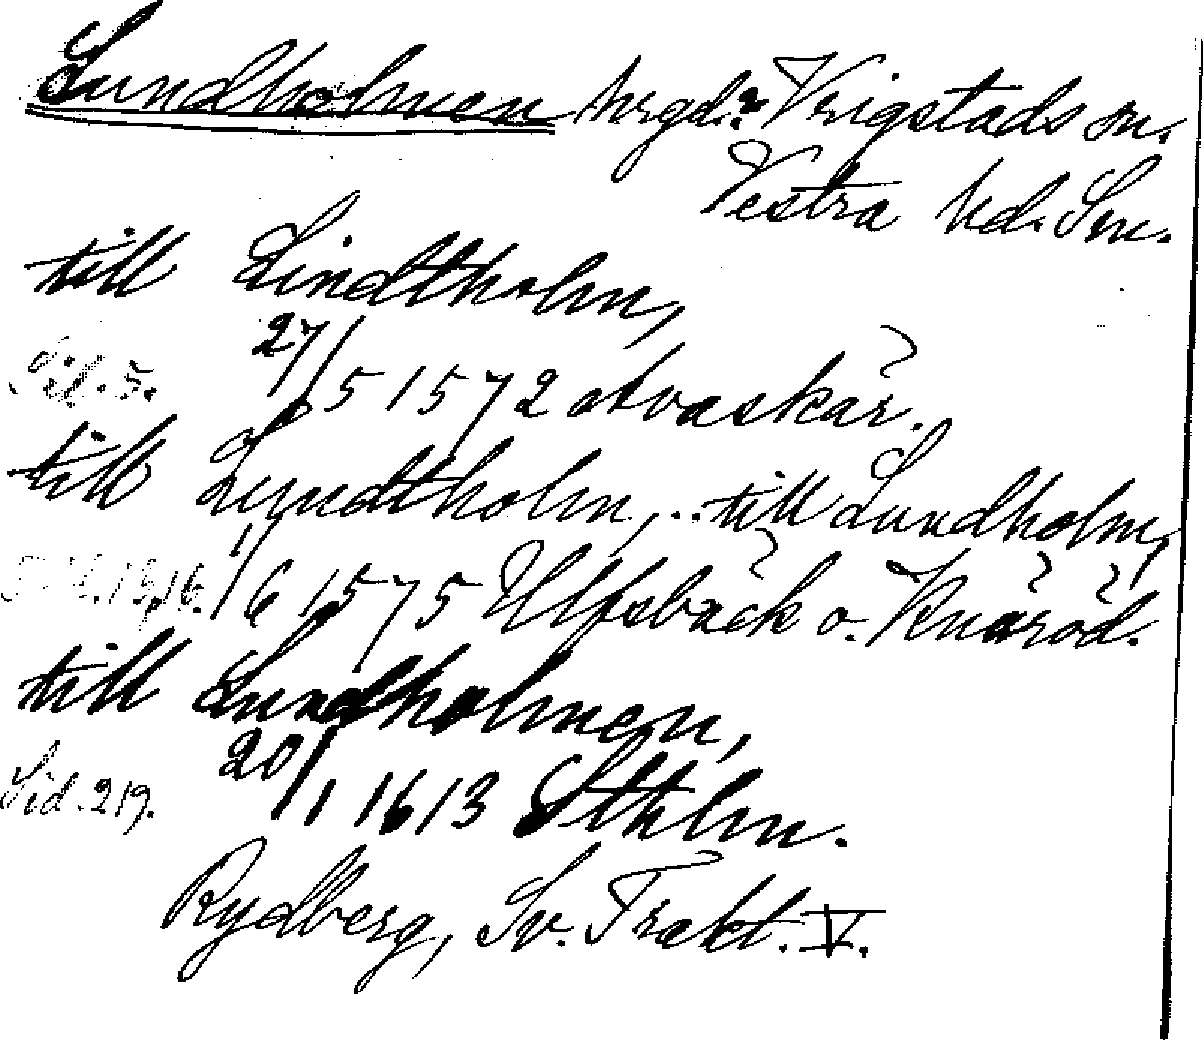 Lundholmen hrgd.? Vrigstads sn.
Vestra hd. Sm.
till Lindtholm,
Sid. 5. 27/5 1572 Avaskär.
till Lyndtholm, .. till Lundholm,
Sid. 15, 16. 1/6 1575 Ulfsbäck o. Knäröd.
till Lundholmen,
Sid. 219. 20/1 1613 Sthlm.
Rydberg, Sv. Trakt. V.